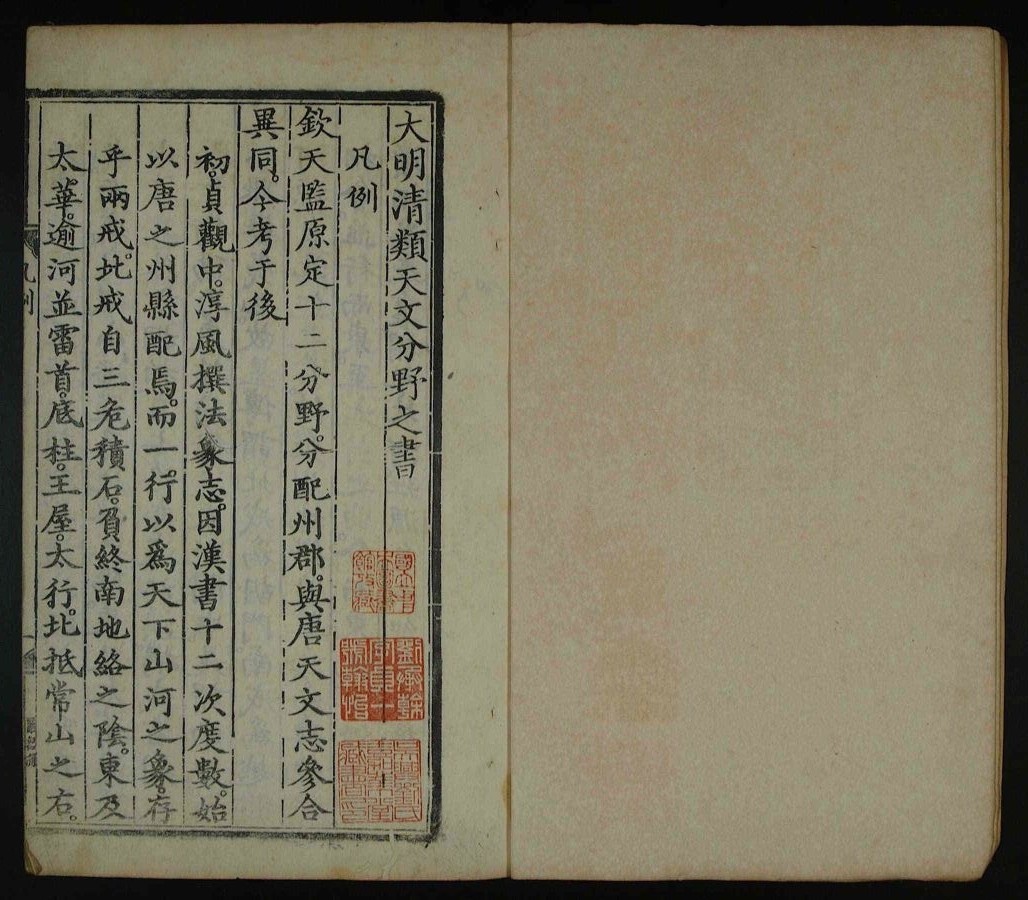 大明清類天文分野之書
凡例
欽天監原定十二分野。分配州郡。與唐天文志參合
異同。今考于後
初。貞觀中。淳風撰法象志。因漢書十二次度數。始
以唐之州縣配焉。而一行。以爲天下山河之象。存
乎兩戒。北戒自三危積石。負終南地絡之陰。東及
太華。逾河並雷首。底柱。王屋。太行。北抵常山之右。
凡例
國立中央圖書館考藏
劉承幹字貞一號翰怡
吳興劉氏嘉業堂藏書印